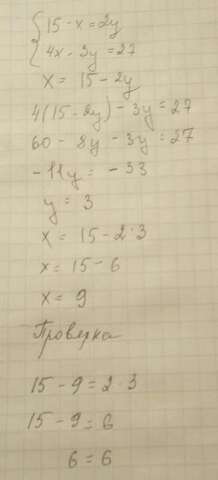 15 - x = 2y
4x - 3y = 27
x = 15 - 2y
4(15 - 2y) - 3y = 27
60 - 8y - 3y = 27
-11y = -33
y = 3
x = 15 - 2·3
x = 15 - 6
x = 9
Проверка
15 - 9 = 2·3
15 - 9 = 6
6 = 6